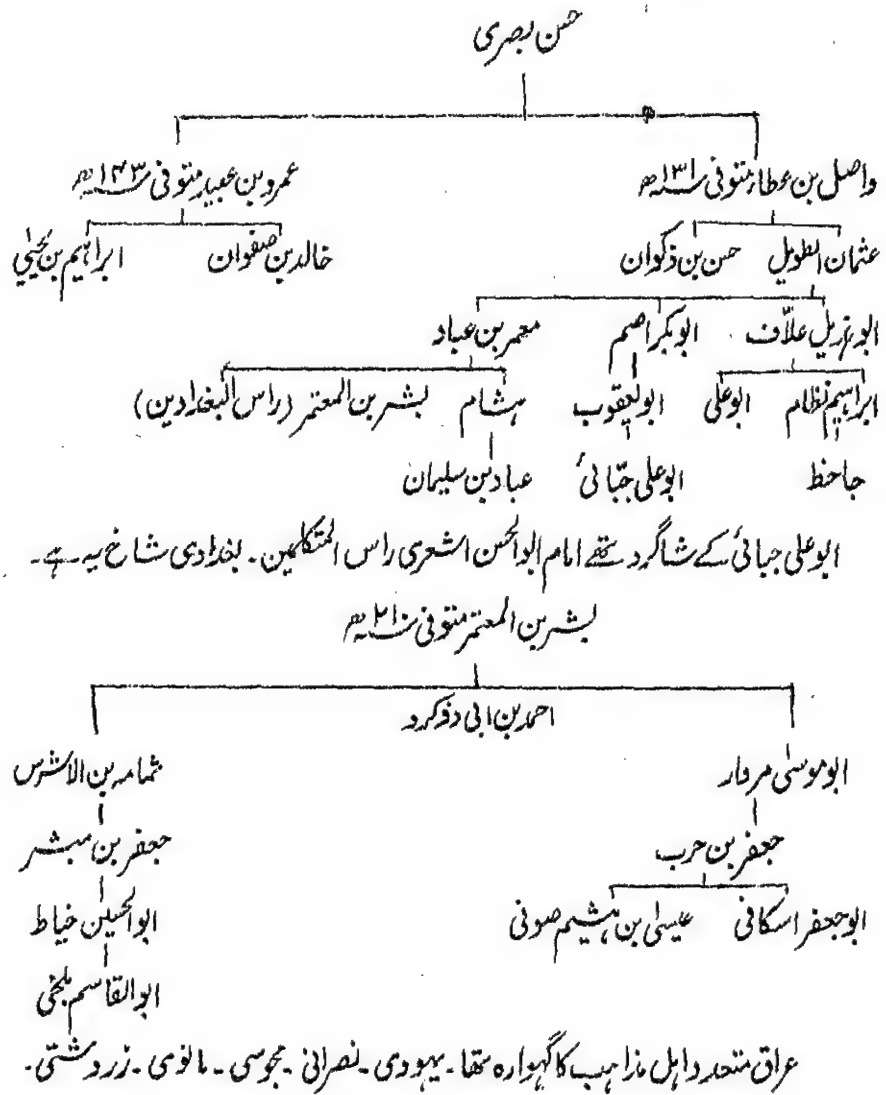 حسن بصری
واصل بن عطاء متوفی ۱۳۱ھ عمرو بن عبید متوفی ۱۴۳ھ
عثمان الطویل حسن بن ذکوان خالد بن صفوان ابراہیم بن یحییٰ
ابو ہزیل علّاف ابوبکر اصم معمر بن عباد
ابراہیم نظام ابو علی ابو یعقوب ہشام بشر بن المعتمر (راس البغدادین)
جاحظ ابو علی جبّائی عباد بن سلیمان
ابو علی جبائی کے شاگرد تھے امام ابوالحسن اشعری راس المتکلمین۔ بغدادی شاخ یہ ہے۔
بشر بن المعتمر متوفی ۲۱۰ھ
احمد بن ابی دؤکرد
ابو موسیٰ مردار ثمامہ بن الاشرس
جعفر بن حرب جعفر بن مبشر
ابو جعفر اسکافی عیسیٰ بن ہشیم صوفی ابوالحسین خیاط
ابوالقاسم بلخی
عراق متعدد اہل مذاہب کا گہوارہ تھا۔ یہودی۔ نصرانی۔ مجوسی۔ مانوی۔ زردشتی۔